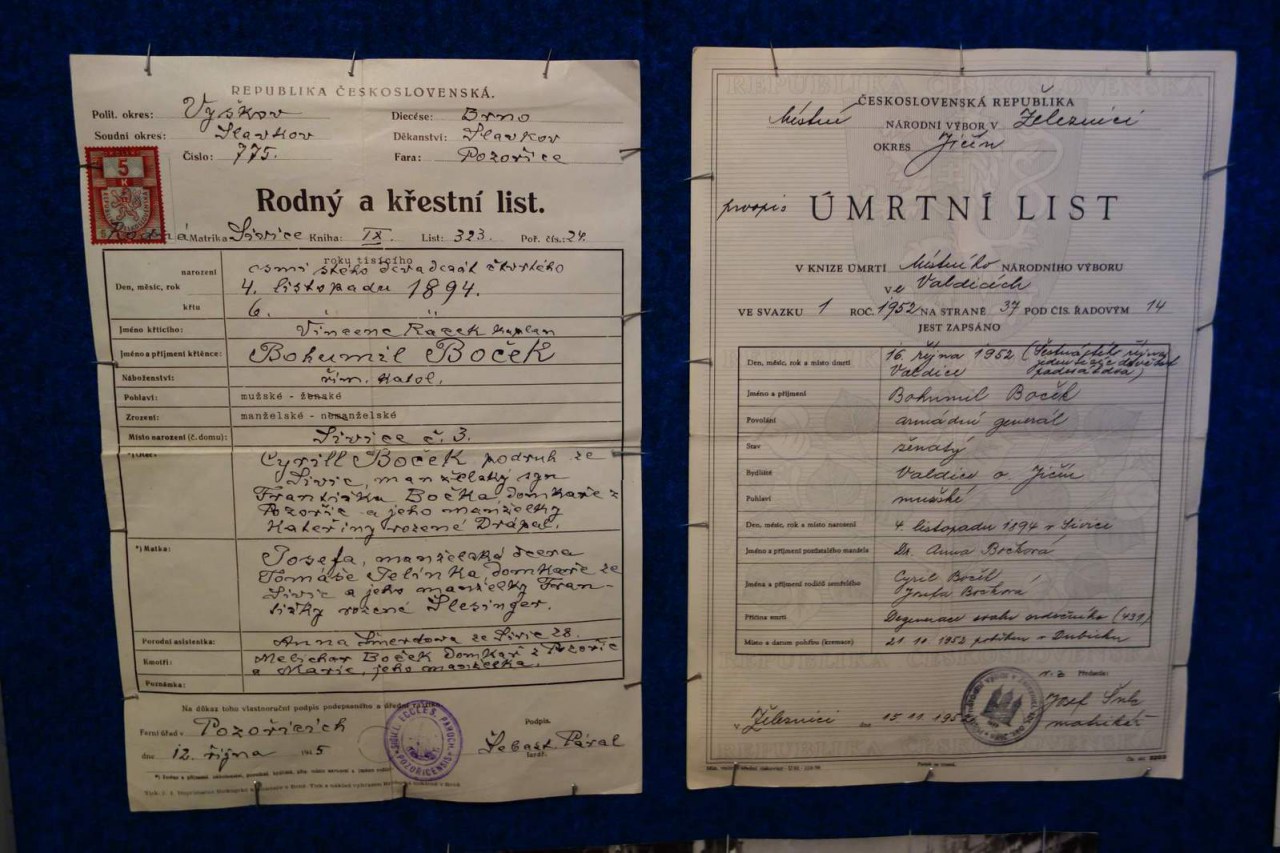 REPUBLIKA ČESKOSLOVENSKÁ.
Polit. okres: Vyškov
Diecése: Brno
Soudní okres: Slavkov
Děkanství: Slavkov
Číslo: 775.
Fara: Pozořice
5
K
Rodný a křestní list.
Rodná Matrika Sivice Kniha: IX. List: 323. Poř. čís.: 24.
roku tisícího
narození osmistého devadesát čtvrtého
Den, měsíc, rok 4. listopadu 1894.
křtu 6. " "
Jméno křtícího: Vincenc Raček kaplan
Jméno a příjmení křtěnce: Bohumil Boček
Náboženství: řím. katol.
Pohlaví: mužské - ženské
Zrození: manželské - nemanželské
Místo narození (č. domu): Sivice č. 3.
*) Otec: Cyrill Boček podruh ze
Sivic, manželský syn
Františka Bočka, domkaře z
Pozořic a jeho manželky
Kateřiny rozené Drápal.
*) Matka: Josefa, manželská dcera
Tomáše Jelínka, domkaře ze
Sivic a jeho manželky Fran-
tišky rozené Šlesinger.
Porodní asistentka: Anna Šmerdova ze Sivic 28.
Kmotři: Melichar Boček domkař z Pozořic
a Marie, jeho manželka.
Poznámka:
Na důkaz toho vlastnoruční podpis podepsaného a úřední
Farní úřad v Pozořicích
Podpis.
dne 12. října 19 5
farář.
SIGIL. ECCLES. PAROCH. POZOŘICENSIS
REPUBLIKA ČESKOSLOVENSKÁ
ČESKOSLOVENSKÁ REPUBLIKA
Místní NÁRODNÍ VÝBOR V Železnici
OKRES Jičín
prvopis ÚMRTNÍ LIST
V KNIZE ÚMRTÍ Místního NÁRODNÍHO VÝBORU
ve Valdicích
VE SVAZKU 1 ROČ. 1952 NA STRANĚ 37 POD ČÍS. ŘADOVÝM 14
JEST ZAPSÁNO
Den, měsíc, rok a místo úmrtí 16. října 1952 (Šestnáctého října
jedentisícdevětset
Valdice padesátdva)
Jméno a příjmení Bohumil Boček
Povolání armádní generál
Stav ženatý
Bydliště Valdice o Jičín
Pohlaví mužské
Den, měsíc, rok a místo narození 4. listopadu 1894 v Sivici
Jméno a příjmení pozůstalého manžela Dr. Anna Bočková
Jména a příjmení rodičů zemřelého Cyril Boček
Josefa Bočková
Příčina smrti Degenerace svalu srdečního (431)
Místo a datum pohřbu (kremace) 21. 10. 1952 pohřben v
Předseda:
V Železnici dne 15. 11. 1952
Josef
matrikář